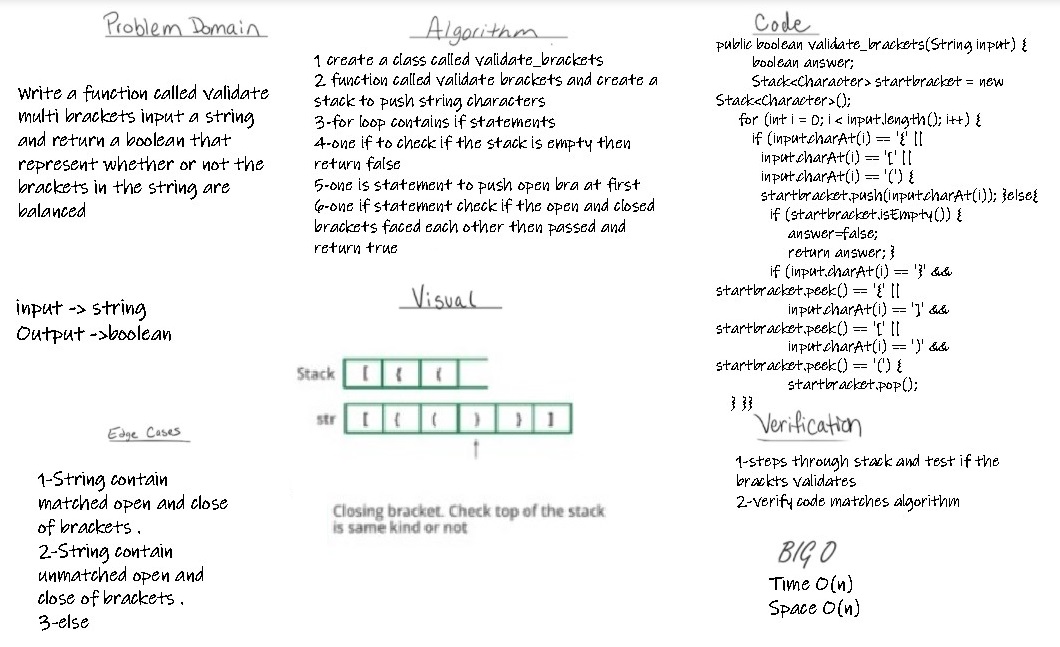 Problem Domain
Write a function called validate
multi brackets input a string
and return a boolean that
represent whether or not the
brackets in the string are
balanced
input -> string
Output ->boolean
Edge Cases
1-String contain
matched open and close
of brackets .
2-String contain
unmatched open and
close of brackets .
3-else
Algorithm
1 create a class called validate_brackets
2 function called validate brackets and create a
stack to push string characters
3-for loop contains if statements
4-one if to check if the stack is empty then
return false
5-one is statement to push open bra at first
6-one if statement check if the open and closed
brackets faced each other then passed and
return true
Visual
Stack [ { (
str [ { ( ) } ]
Closing bracket. Check top of the stack
is same kind or not
Code
public boolean validate_brackets(String input) {
boolean answer;
Stack<Character> startbracket = new
Stack<Character>();
for (int i = 0; i < input.length(); i++) {
if (input.charAt(i) == '{' ||
input.charAt(i) == '[' ||
input.charAt(i) == '(') {
startbracket.push(input.charAt(i)); }else{
if (startbracket.isEmpty()) {
answer=false;
return answer; }
if (input.charAt(i) == '}' &&
startbracket.peek() == '{' ||
input.charAt(i) == ']' &&
startbracket.peek() == '[' ||
input.charAt(i) == ')' &&
startbracket.peek() == '(') {
startbracket.pop();
} }}
Verification
1-steps through stack and test if the
brackts validates
2-verify code matches algorithm
BIG O
Time O(n)
Space O(n)